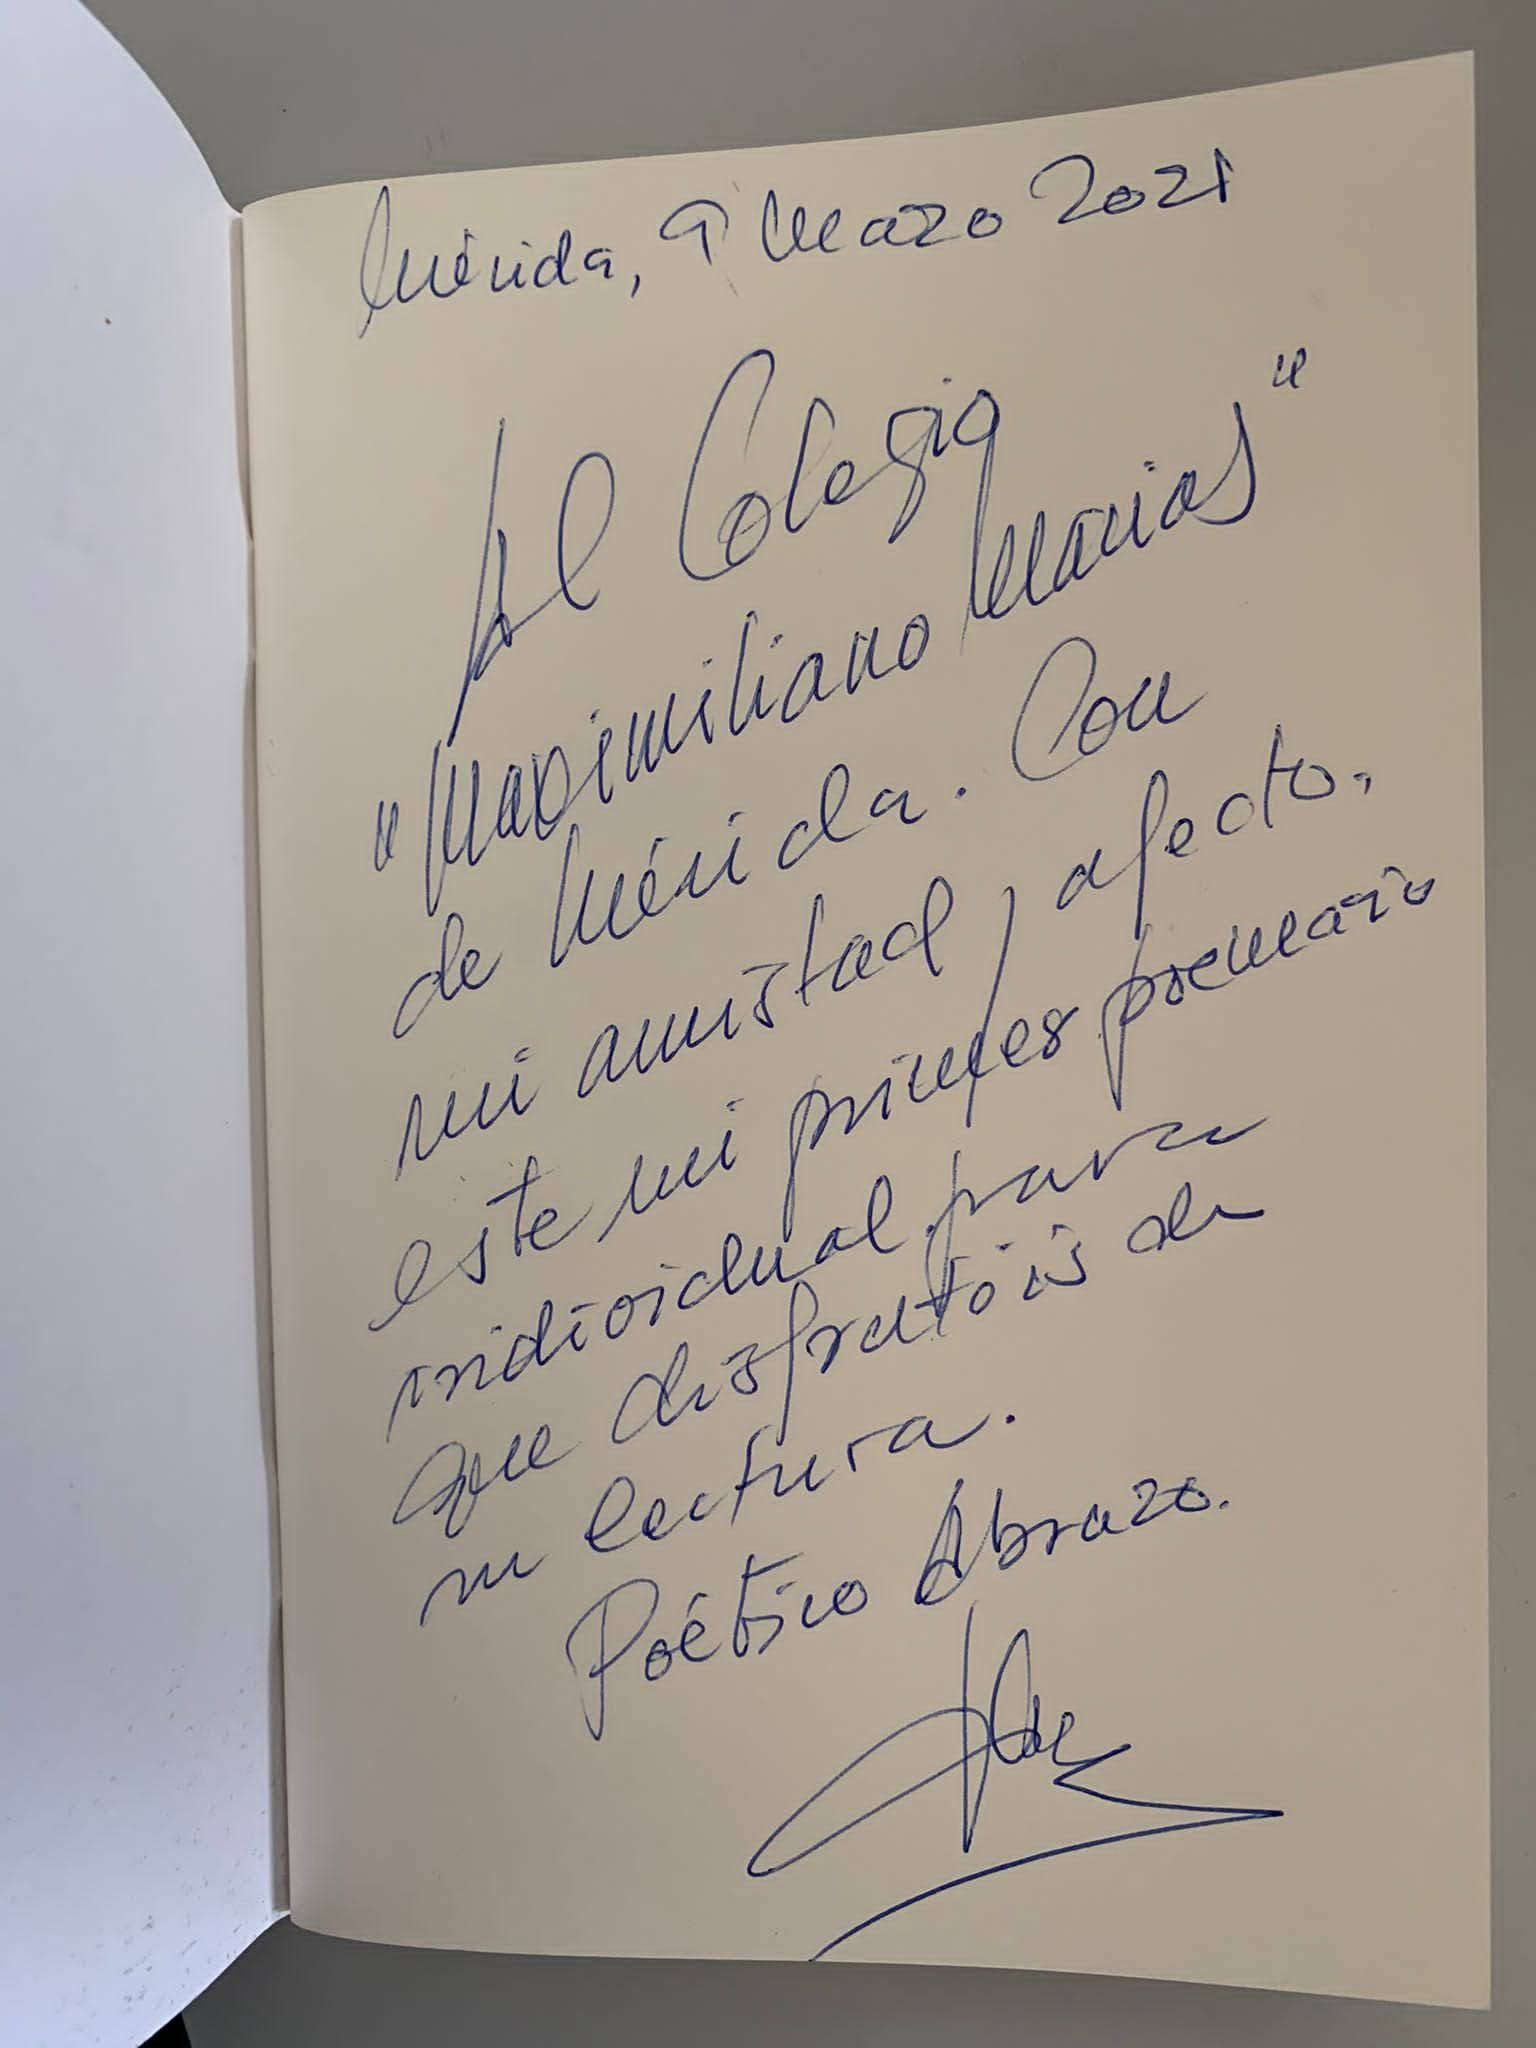 Mérida, 9 Marzo 2021
Al Colegio
"Maximiliano Macías"
de Mérida. Con
mi amistad y afecto.
este mi primer poemario
individual para
que disfrutéis de
su lectura.
Poético Abrazo.